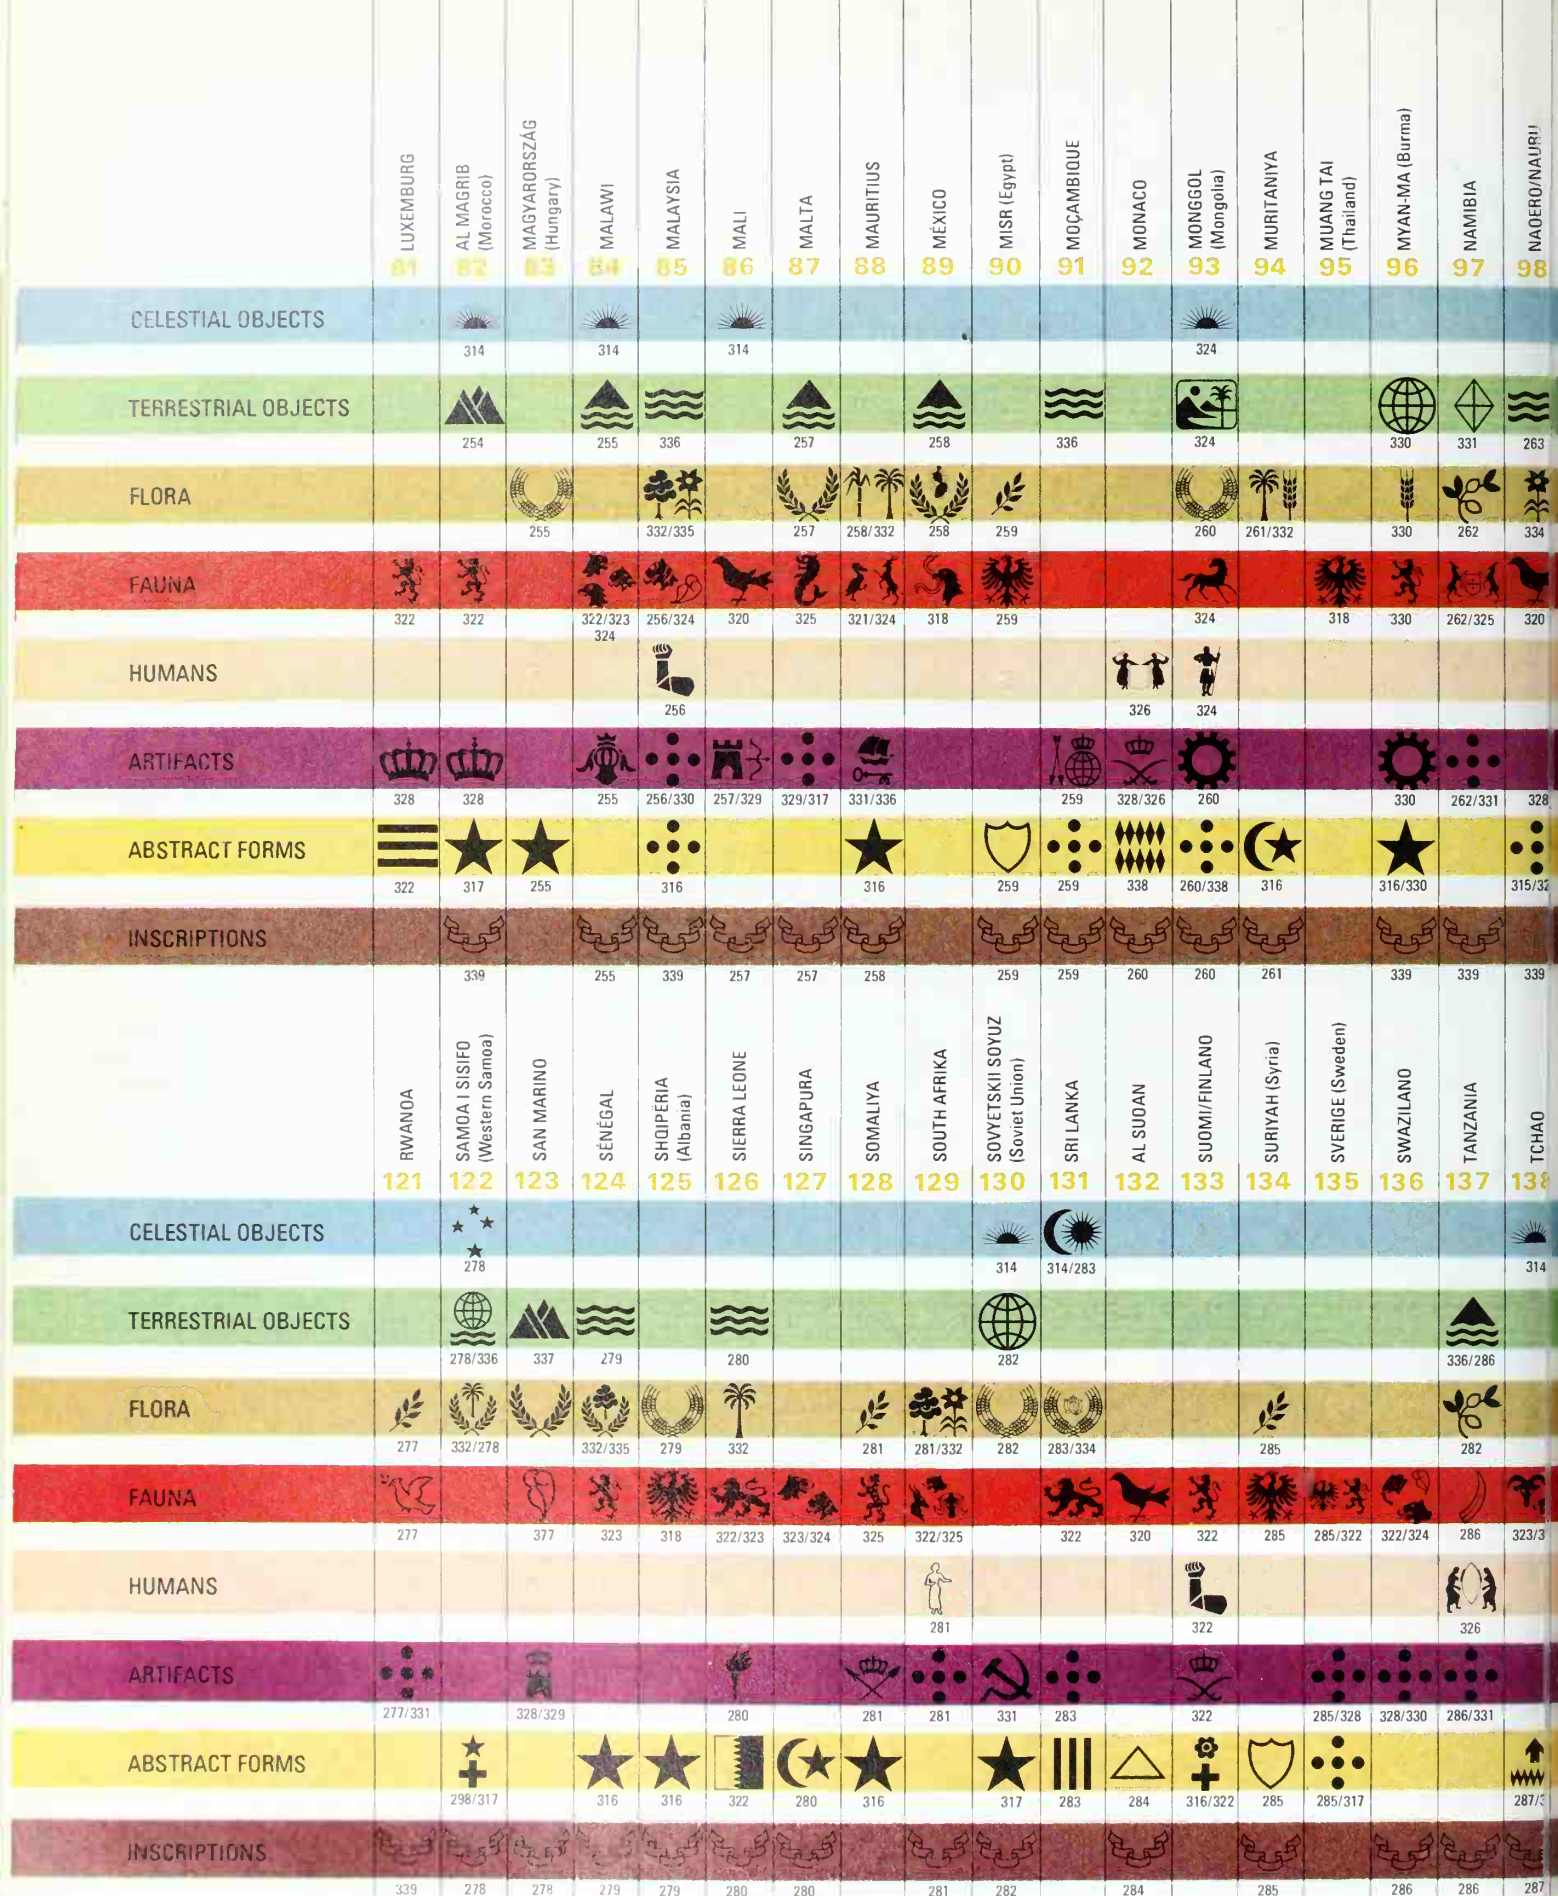 LUXEMBURG
AL MAGRIB
(Morocco)
MAGYARORSZÁG
(Hungary)
MALAWI
MALAYSIA
MALI
MALTA
MAURITIUS
MÉXICO
MISR (Egypt)
MOÇAMBIQUE
MONACO
MONGGOL
(Mongolia)
MURITANIYA
MUANG TAI
(Thailand)
MYAN-MA (Burma)
NAMIBIA
NAOERO/NAURU
81 82 83 84 85 86 87 88 89 90 91 92 93 94 95 96 97 98
CELESTIAL OBJECTS
314 314 314 324
TERRESTRIAL OBJECTS
254 255 336 257 258 336 324 330 331 263
FLORA
255 332/335 257 258/332 258 259 260 261/332 330 262 334
FAUNA
322 322 322/323 256/324 320 325 321/324 318 259 324 318 330 262/325 320
324
HUMANS
256 326 324
ARTIFACTS
328 328 255 256/330 257/329 329/317 331/336 259 328/326 260 330 262/331 328
ABSTRACT FORMS
322 317 255 316 316 259 259 338 260/338 316 316/330 315/32
INSCRIPTIONS
339 255 339 257 257 258 259 259 260 260 261 339 339 339
RWANOA
SAMOA I SISIFO
(Western Samoa)
SAN MARINO
SÉNÉGAL
SHQIPËRIA
(Albania)
SIERRA LEONE
SINGAPURA
SOMALIYA
SOUTH AFRIKA
SOVYETSKII SOYUZ
(Soviet Union)
SRI LANKA
AL SUOAN
SUOMI/FINLANO
SURIYAH (Syria)
SVERIGE (Sweden)
SWAZILANO
TANZANIA
TCHAO
121 122 123 124 125 126 127 128 129 130 131 132 133 134 135 136 137 138
CELESTIAL OBJECTS
278 314 314/283 314
TERRESTRIAL OBJECTS
278/336 337 279 280 282 336/286
FLORA
277 332/278 332/335 279 332 281 281/332 282 283/334 285 282
FAUNA
277 377 323 318 322/323 323/324 325 322/325 322 320 322 285 285/322 322/324 286 323/3
HUMANS
281 322 326
ARTIFACTS
277/331 328/329 280 281 281 331 283 322 285/328 328/330 286/331
ABSTRACT FORMS
298/317 316 316 322 280 316 317 283 284 316/322 285 285/317 287/3
INSCRIPTIONS
339 278 278 279 279 280 280 281 282 284 285 286 286 287